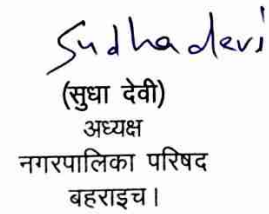 Sudha devi
(सुधा देवी)
अध्यक्ष
नगरपालिका परिषद
बहराइच।